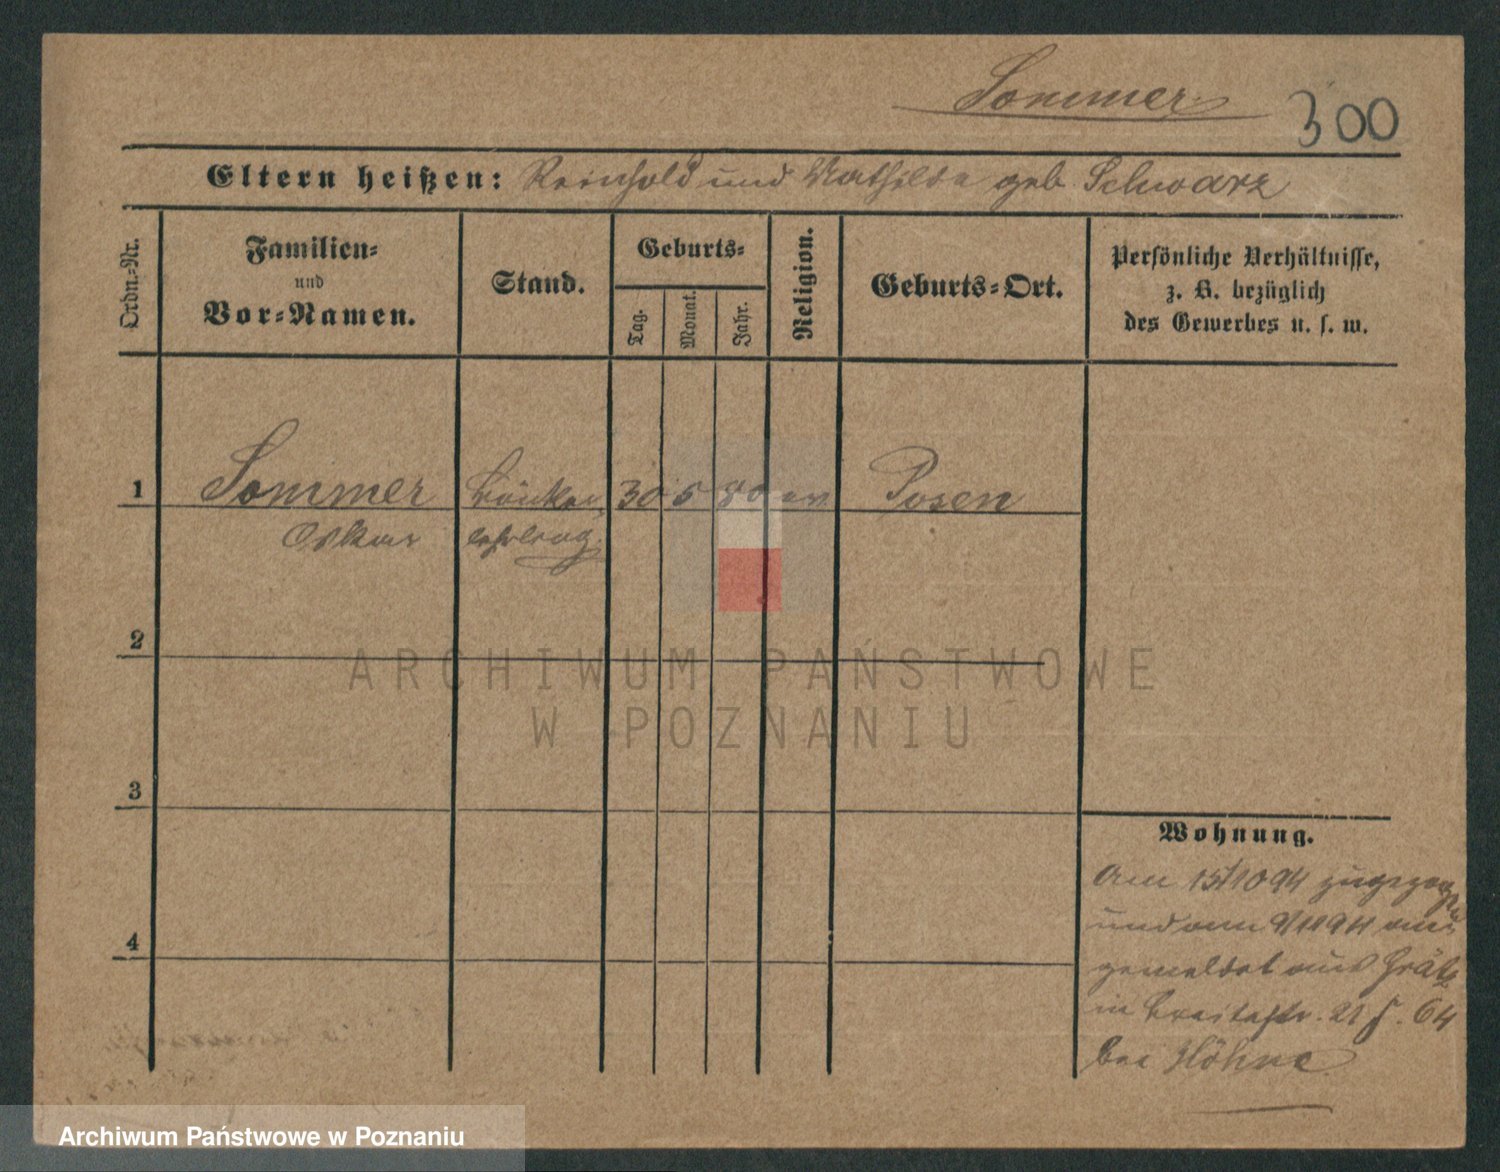 Sommer
300
Eltern heißen: Reinhold und Mathilde geb. Schwarz
Ordn.-Nr.
Familien-
und
Vor-Namen.
Stand.
Geburts-
Tag.
Monat.
Jahr.
Religion.
Geburts-Ort.
Persönliche Verhältnisse,
z. B. bezüglich
des Gewerbes u. s. w.
1 Sommer 30 5 80 ev Posen
Oskar lehrling
2
ARCHIWUM PAŃSTWOWE
W POZNANIU
3
4
Wohnung.
Am 15/10 94 zugezogen
und am 9/11 94 an
gemeldet aus Grätz
in Breitestr. 21 f. 64
bei Höhne
Archiwum Państwowe w Poznaniu